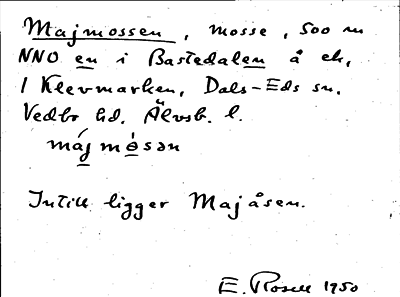 Majmossen, mosse, 500 m
NNO en i Bastedalen å ek,
1 Klevmarken, Dals-Eds sn.
Vedbo hd. Älvsb. l.
máj mòsən
Intill ligger Majåsen.
E. Rosell 1950